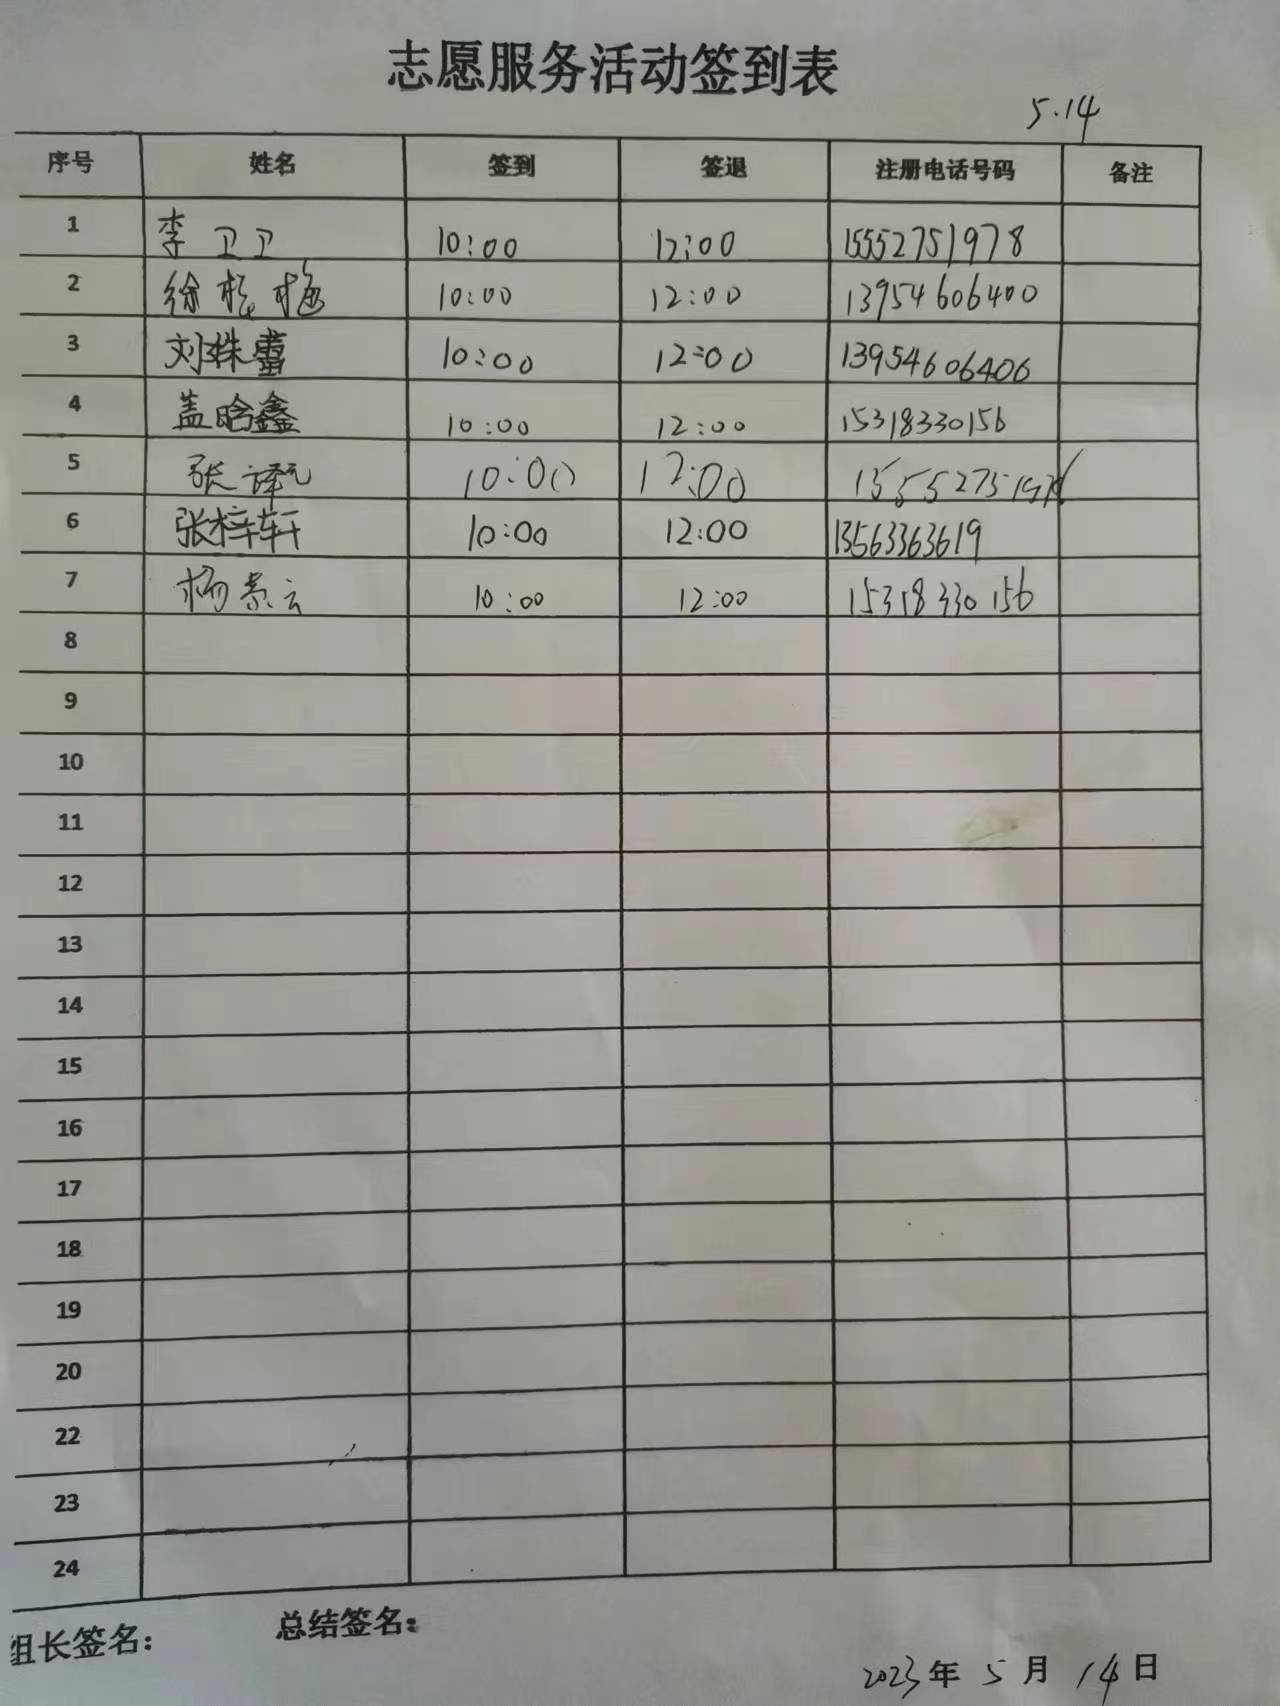 志愿服务活动签到表
5.14
序号 姓名 签到 签退 注册电话号码 备注
1 李卫卫 10:00 12:00 15552751978
2 徐松梅 10:00 12:00 13954606400
3 刘姝蕾 10:00 12:00 13954606406
4 盖晗鑫 10:00 12:00 15318330156
5 张译元 10:00 12:00
6 张梓轩 10:00 12:00 13563363619
7 杨素云 10:00 12:00 15318330156
8
9
10
11
12
13
14
15
16
17
18
19
20
22
23
24
组长签名： 总结签名：
2023年5月14日